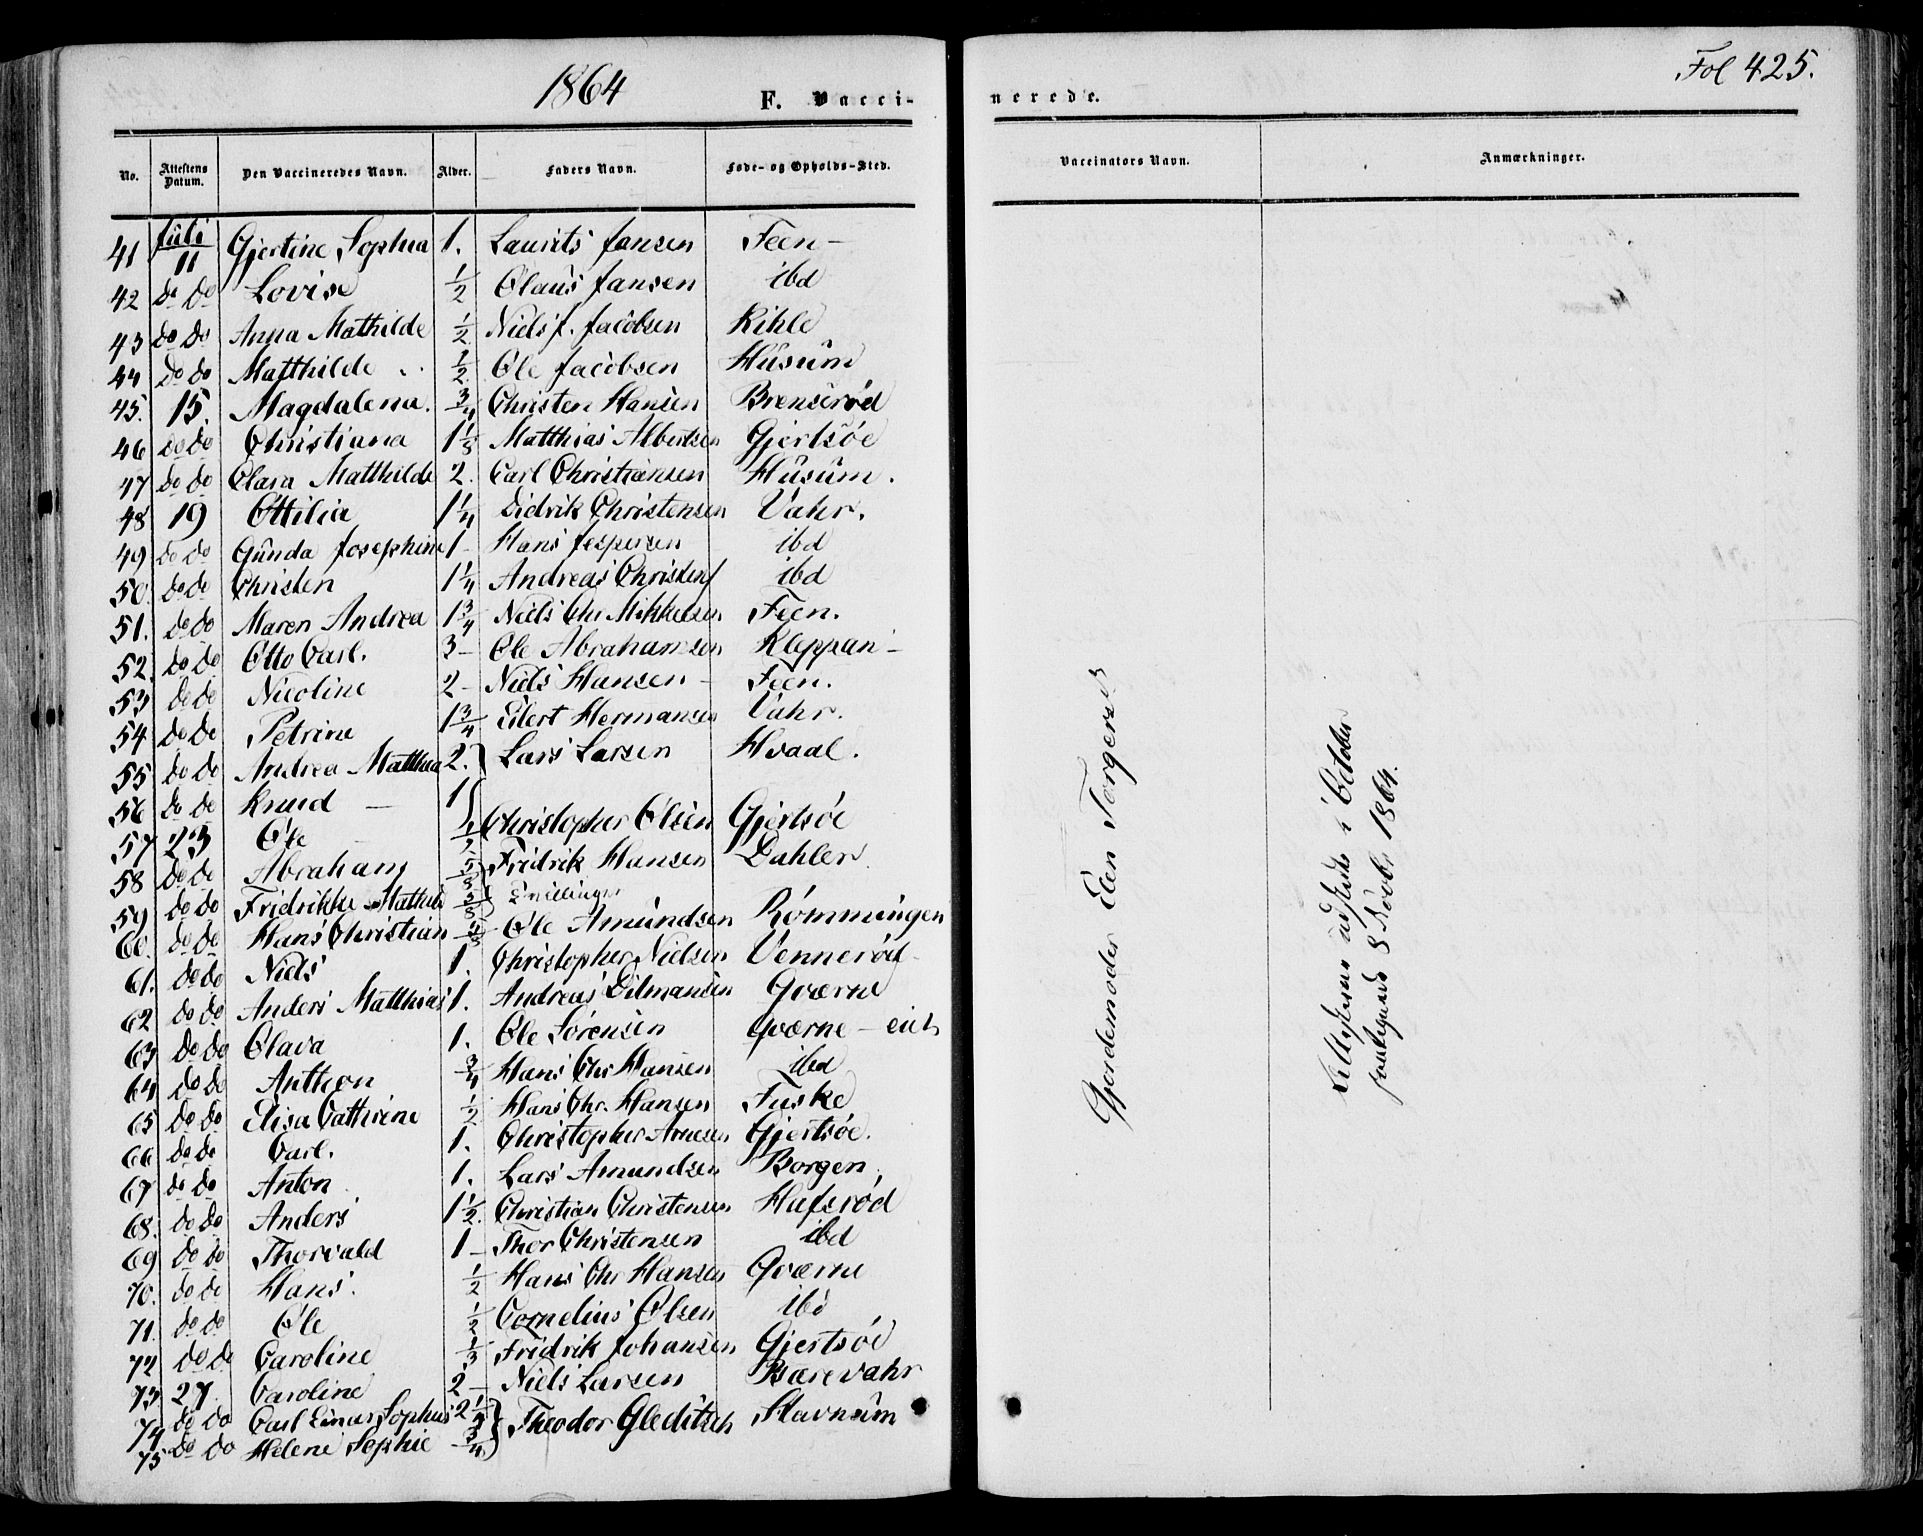 1864
F. Vacci-
No. Attestens Datum. Den Vaccineredes Navn. Alder. Faders Navn. Føde- og Opholds-Sted.
41 Juli 11 Gjertine Sophia 1. Laurits Jansen Feen -
42 do do Lovise 1/2 Claus Jansen ibd
43 do do Anna Mathilde 1/2 Niels J. Jacobsen Kihle
44 do do Matthilde 1/2 Ole Jacobsen Husum
45. 15. Magdalena. 3/4 Christen Hansen Brenserød
46 do do Christiana 1 1/3 Matthias Albertsen Gjertsøe
47 do do Clara Matthilde 2. Carl Christiansen Husum.
48 19 Ottilia 1 1/4 Didrik Christensen Vahr.
49 do do Gunda Josephine 1 - Hans Jespersen ibd
50 do do Christen 1 1/4 Andreas Christens ibd
51. do do Maren Andrea 1 3/4 Niels Chr Mikkelsen Feen.
52. do do Otto Carl. 3 - Ole Abrahamsen Kleppan -
53 do do Nicoline 2 - Niels Hansen - Feen.
54 do do Petrine 1 3/4 Eilert Hermansen Vahr.
55 do do Andrea Matthea 2. } Lars Larsen Hvaal.
56 do do Knud - 1 }
57 23 Ole 1/2 Christopher Olsen Gjertsøe
58 do do Abraham Fridrik Hansen Dahler
59 do do Fridrikke Mathilde Tvillinger
60. do do Hans Christian Ole Amundsen Rømmingen
61. do do Niels 1. Christopher Nielsen Vennerød -
62 do do Anders Matthias 1. Andreas Dilmansen Qværne
63 do do Olava 1. Ole Sørensen Qværne - eie
64 do do Anthon 3/4 Hans Chr Hansen ibd
65 do do Elisa Cathrine 1/2 Hans Chr. Hansen Fuske
66 do do Carl. 1. Christopher Arnesen Gjertsøe.
67 do do Anton 1. Lars Amundsen Borgen.
68. do do Anders 1 1/2. Christian Christensen Hafsrød
69 do do Thorvald 1 - Thor Christensen ibd
70. do do Hans. 1/2 Hans Chr Hansen Qværne
71. do do Ole 1/2 Cornelius Olsen ibd
72 do do Caroline 1/3 Fridrik Johansen Gjertsøe
73 27. Caroline 2 - Niels Larsen Bærevahr
74 do do Carl Einar Sophus 2 1/2 } Theodor Gleditsch Stavnum
75 do do Helene Sophie 3/4 }
Fol 425.
nerede.
Vaccinators Navn. Anmærkninger.
Gjordemoder Elen Torgersen
Attesterne udstedt i October
8 Novbr 1864.